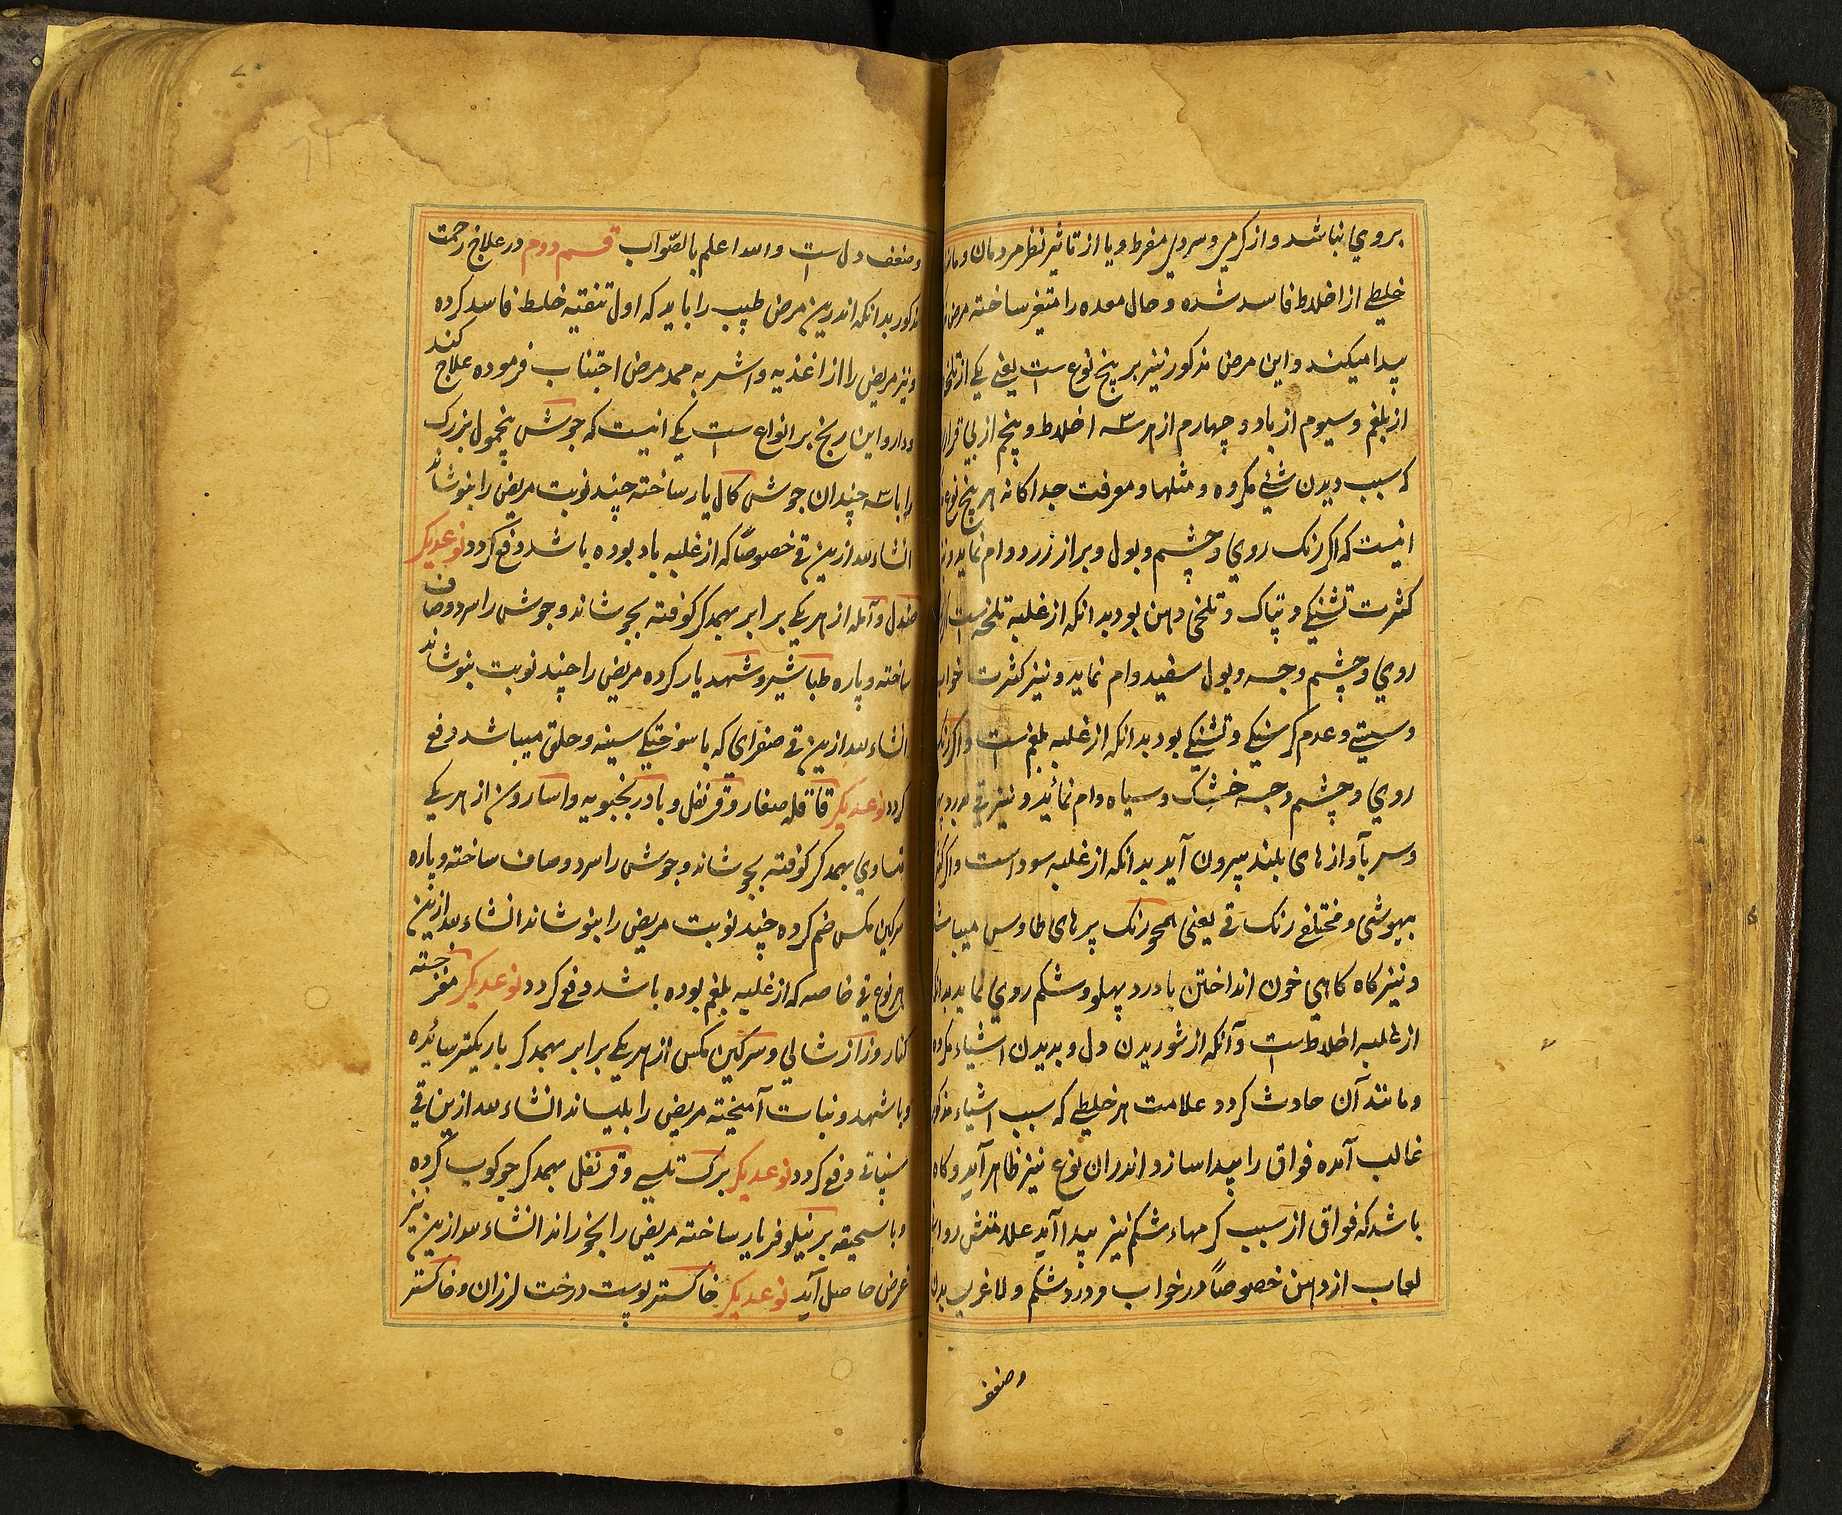 بروی نباشد و از گرمی و سردی مفرط و یا از تاثیر نظر مردمان و
خلطی از اخلاط فاسد شده و حال معده را متغیر ساخته مرض
پیدا میکند و این مرض مذکور نیز بر پنج نوع ست یعنی یکی از
از بلغم و سیوم از باد و چهارم از هر سه اخلاط و پنجم از
که سبب دیدن شیٔ مکروه و مثلها و معرفت جداگانه هر پنج نوع
اینست که اگر رنک روی و چشم و بول و براز زرد وام نماید و
کثرت تشنیگی و تپاک و تلخی دهن بود بدانکه از غلبه تلخه است
روی و چشم و جسه و بول سفید وام نماید و نیز کثرت خواب
و سستی و عدم کرسنیگی و تشنیگی بود بدانکه از غلبه بلغم ست و اکر رنک
روی و چشم و جسه خشک و سیاه وام نمائید و نیز قی
و سر بآوازهای بلند بیرون آید بدانکه از غلبه سودا ست و اکر
بیهوشی و مختلف رنک قی یعنی همچو رنک پرهای طاوس میباشد
و نیز کاه کاهی خون انداختن با درد پهلو و شکم روی نماید
از غلبه اخلاط ست و آنکه از شوریدن دل و بدیدن اشیاء مکروه
و مانند آن حادث کردد علامت هر خلطی که سبب اشیاء مذکور
غالب آمده فواق را پیدا سازد اندران نوع نیز ظاهر آید و کاه
باشد که فواق از سبب کرمهاء شکم نیز پیدا آید علامتش
لعاب از دهن خصوصاً در خواب و درد شکم و لاغری بدن
و ضعف
و ضعف دل ست والله اعلم بالصّواب قسم دوم در علاج زحمت
مذکور بدانکه اندرین مرض طبیب را باید که اول تنقیه خلط فاسد کرده
و نیز مریض را از اغذیه و اشربه ممد مرض اجتناب فرموده علاج کند
و دارو این رنج بر انواع ست یکی اینست که جوش پنجمول بزرک
را با سه چندان جوش کال یار ساخته چند نوبت مریض را بنوشاند
انشاءالله ازین قی خصوصاً که از غلبه باد بوده باشد دفع کردد نوعدیکر
صندل و آمله از هر یکی برابر بهمدکر کوفته بجوشاند و جوش را سرد و صاف
ساخته و پاره طباشیر و شهد یار کرده مریض را چند نوبت بنوشاند
انشاءالله ازین قی صفرای که با سوختیگی سینه و حلق میباشد دفع
کردد نوعدیکر قاقله صغار و قرنفل و بادرنجبویه و اسارون از هر یکی
مساوی بهمدکر کوفته بجوشاند و جوش را سرد و صاف ساخته و پاره
سرکین مکس ضم کرده چند نوبت مریض را بنوشاند انشاءالله ازین
هر نوع قی خاصه که از غلبه بلغم بوده باشد دفع کردد نوعدیکر مغز خسته
کنار و زاز شالی و سرکین مکس از هر یکی برابر بهمدکر باریکتر سائده
و با شهد و نبات آمیخته مریض را بلیساند انشاءالله ازین قی
سنپاتی دفع کردد نوعدیکر برکست تلسی و قرنفل بهمدکر جوکوب کرده
و با سحیقه بر نیلوفر یار ساخته مریض را بخوراند انشاءالله ازین نیز
غرض حاصل آید نوعدیکر خاکستر پوست درخت لرزان و خاکستر